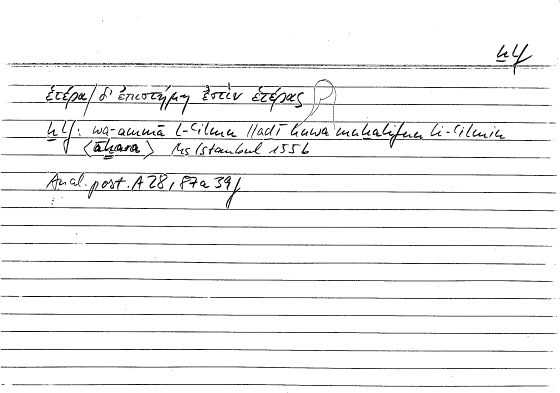 ḫlf
ἑτέρα/ δ' ἐπιστήμη ἐστὶν ἑτέρας
ḫlf: wa-ammā l-ʿilmu lladī huwa muḫalifun li-ʿilmin
<āḫara> Ms Istanbul 155b
Anal. post. A 28, 87a39f